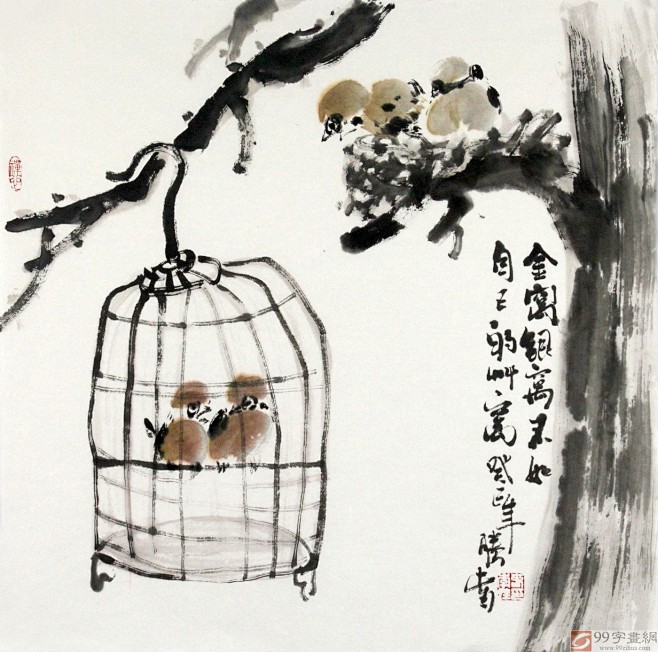 金窝银窝不如
自己的草窝 癸巳年 勝
99字畫網
www.99zihua.com